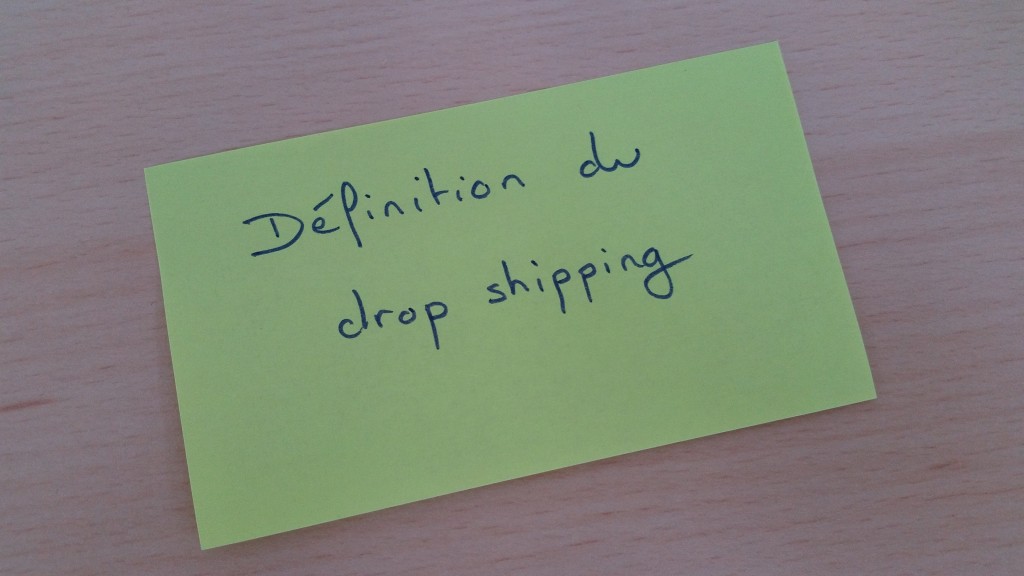 Définition du
drop shipping